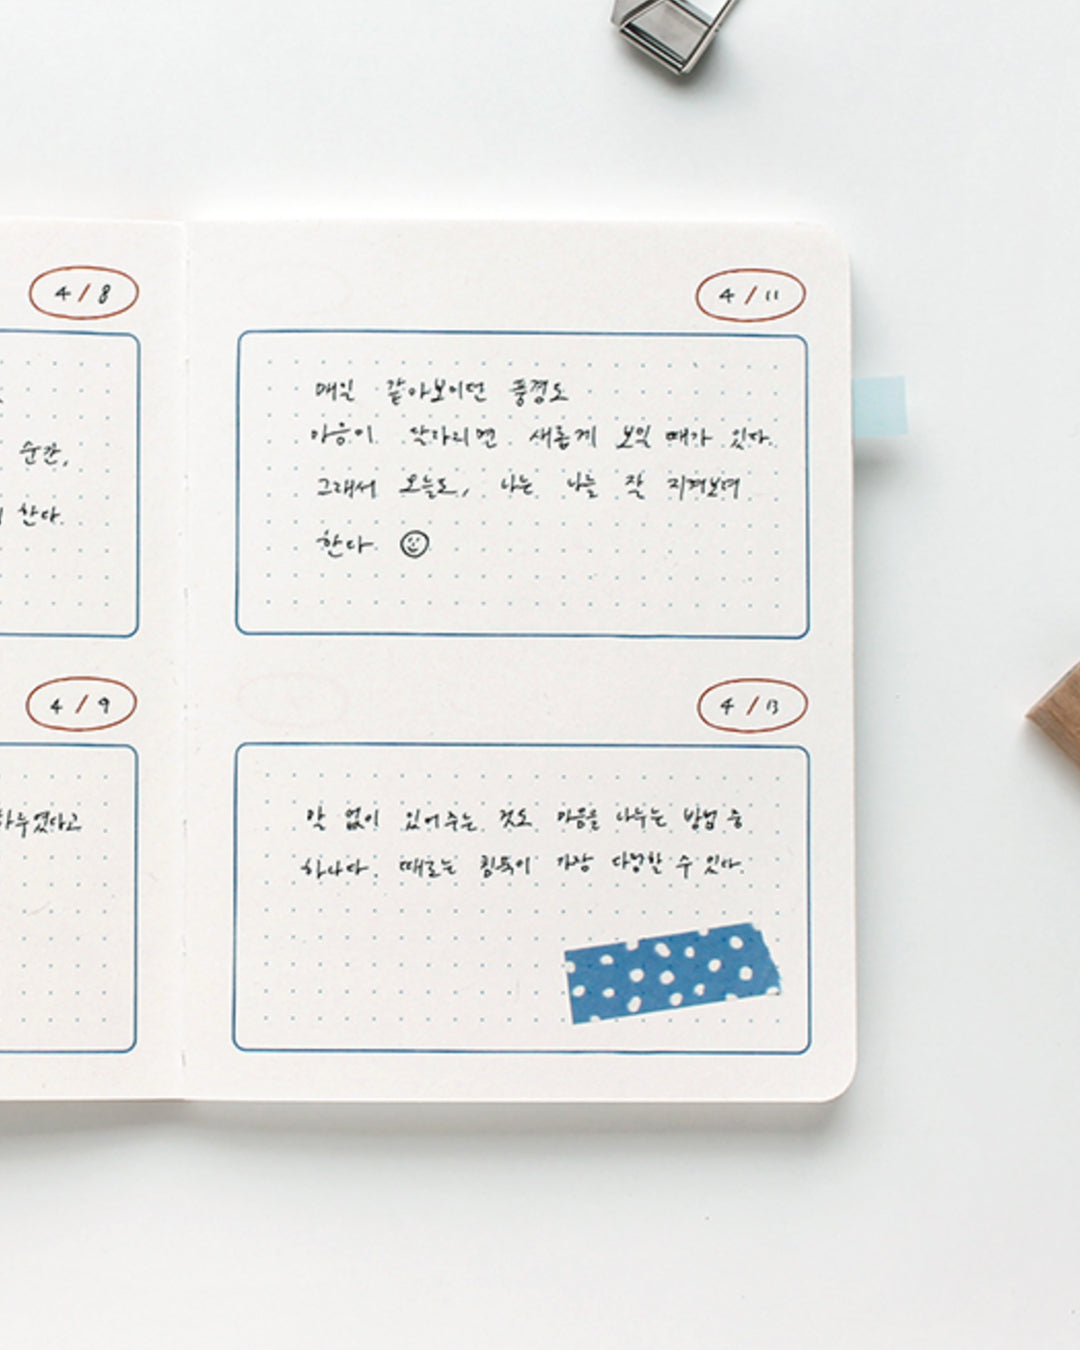 4/8
순간,
한다.
4/9
하루였다고
4/11
매일 같아보이던 풍경도
마음이 달라지면 새롭게 보일 때가 있다.
그래서 오늘도, 나는 나를 잘 지켜보려
한다
4/13
말 없이 있어주는 것도 마음을 나누는 방법 중
하나다. 때로는 침묵이 가장 다정할 수 있다.